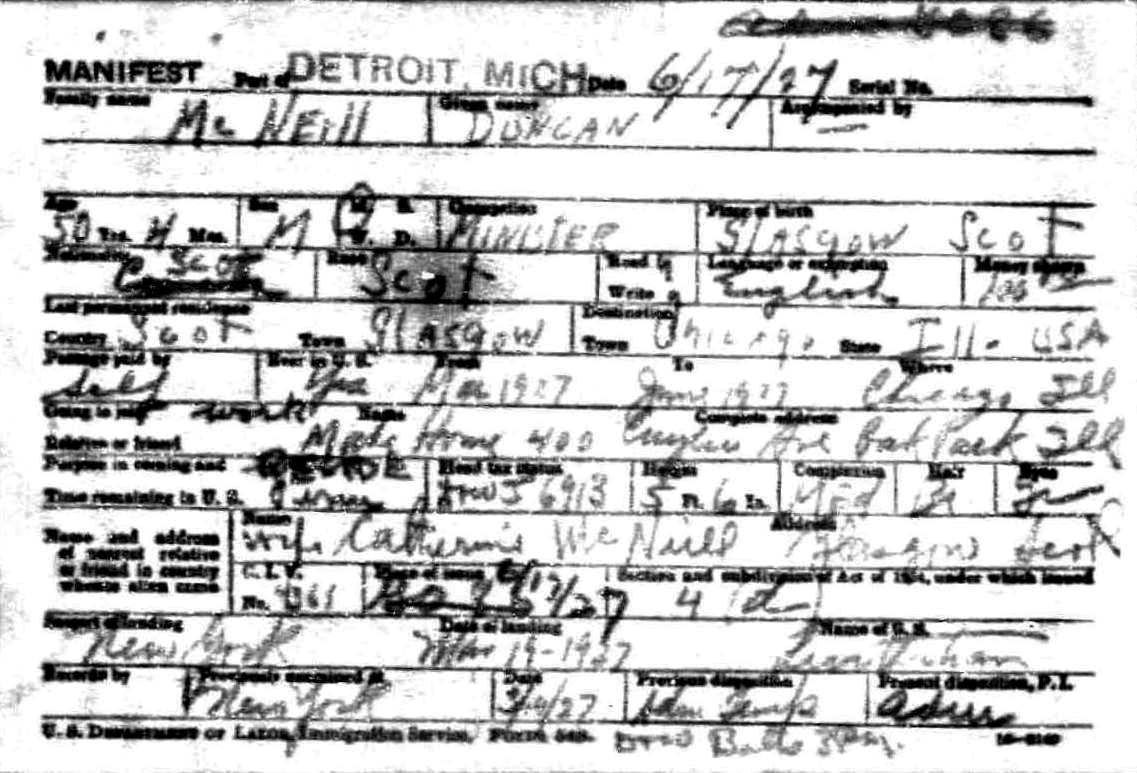 MANIFEST Port of DETROIT, MICH Date 6/17/27 Serial No.
Family name Given name Accompanied by
Mc NEill DUNCAN —
Age Sex M. S. Occupation Place of birth
50 Yrs. 4 Mos. M W. D. MINISTER GLASGOW SCOT
Nationality SCOT Race Scot Read Write Language or exemption English Money shown
Last permanent residence Destination
Country Scot Town GLASGOW Town Chicago State Ill. USA
Passage paid by Been in U. S. From To Where
Self Yes Mar 1927 June 1927 Chicago Ill
Going to join work Name Complete address
Relative or friend Home 400 Ave Oak Park Ill
Purpose in coming and Head tax status Height Complexion Hair Eyes
Time remaining in U. S. 6913 5 Ft. 6 In. Med Br
Name and address of nearest relative or friend in country whence alien came
Name Address
Wife Catherine McNeill Glasgow Scot
C. I. V. Place of issue 6/17/27 Section and subdivision of Act of 1924, under which issued
No. 4 (d)
Seaport of landing Date of landing Name of S. S.
New York Mar 19-1927
Records by Previously examined at Date Previous disposition Present disposition, P. I.
New York Adm Temp
U. S. Department of Labor, Immigration Service, Form 548.